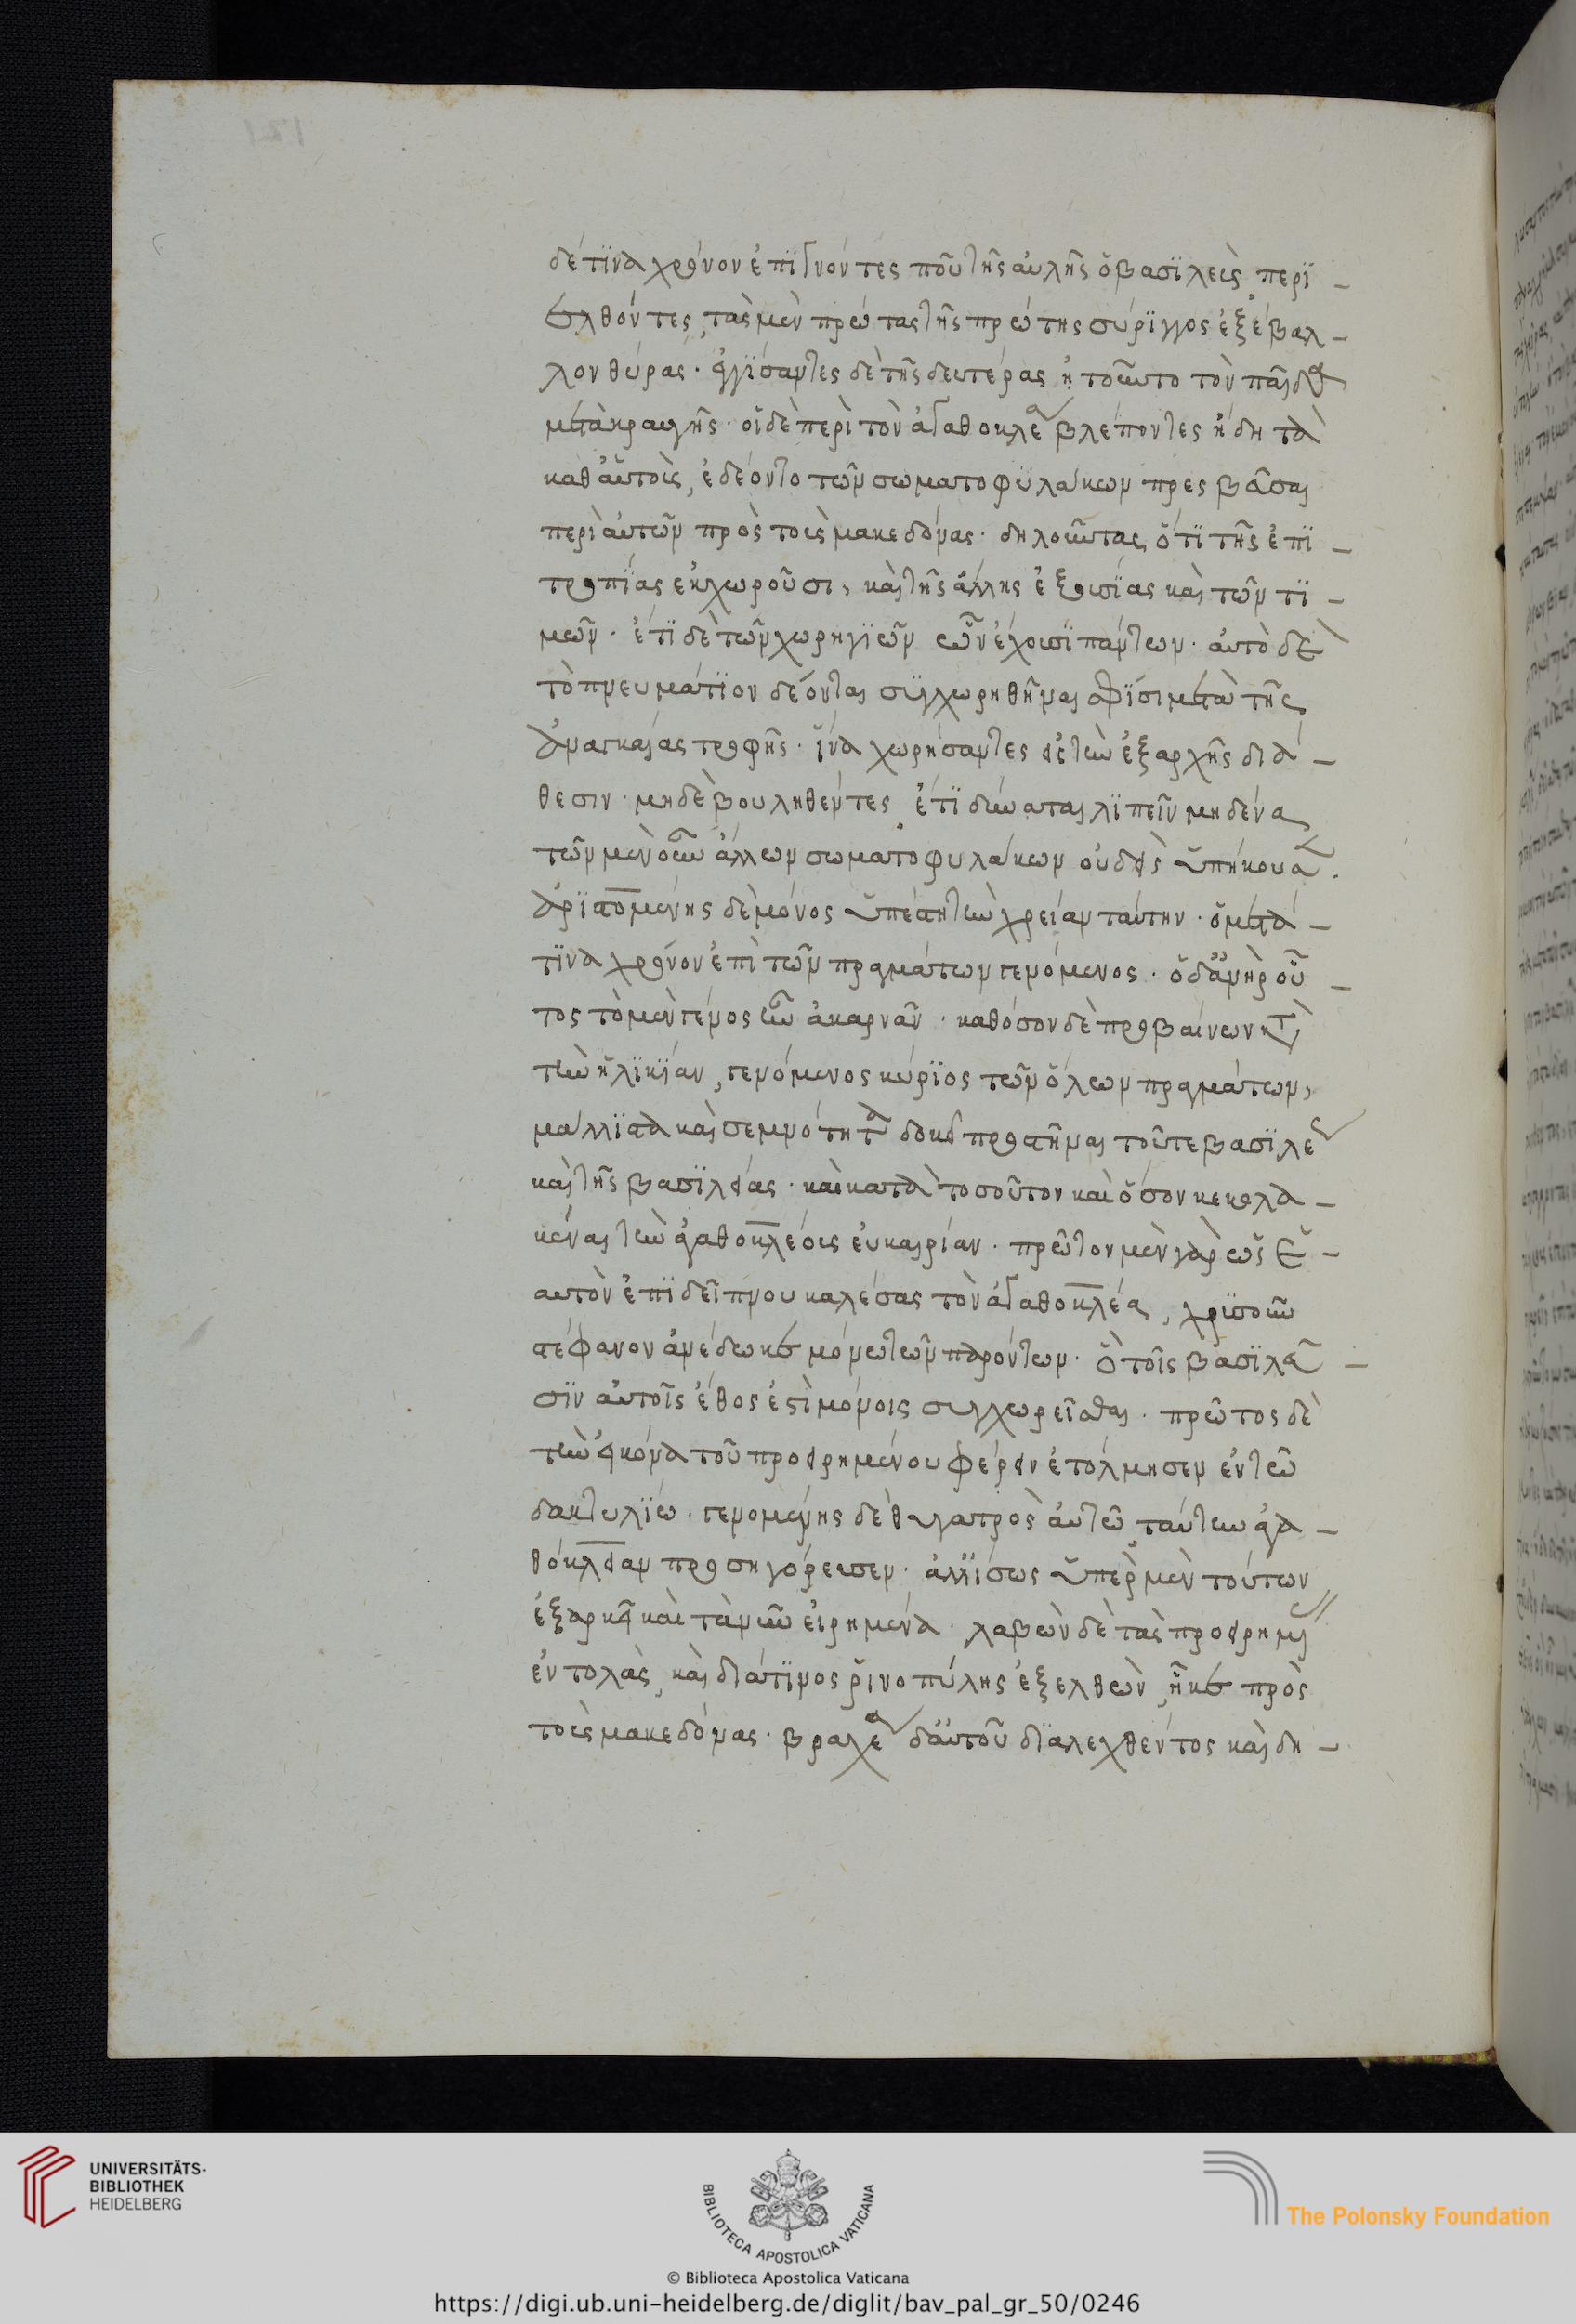 δέ τινα χρόνον ἐπιγνόντες ποῦ τῆς αὐλῆς ὁ βασιλεὺς περι-
ελθόντες, τὰς μὲν πρώτας τῆς πρώτης σύριγγος ἐξέβαλ-
λον θύρας· ἐγγίσαντες δὲ τῆς δευτέρας ἠτοῦντο τὸν παῖδα
μετὰ κραυγῆς· οἱ δὲ περὶ τὸν ἀγαθοκλέα βλέποντες ἤδη τὰ
καθ' αὑτοὺς, ἐδέοντο τῶν σωματοφυλάκων πρεσβεῦσαι
περὶ αὐτῶν πρὸς τοὺς μακεδόνας· δηλοῦντας ὅτι τῆς ἐπι-
τροπίας ἐκχωροῦσι, καὶ τῆς ἄλλης ἐξουσίας καὶ τῶν τι-
μῶν· ἔτι δὲ τῶν χωρηγιῶν ὧν ἔχουσι πάντων· αὐτὸ δὲ
τὸ πνευμάτιον δέονται συγχωρηθῆναι σφίσι μετὰ τῆς
ἀναγκαίας τροφῆς· ἵνα χωρήσαντες εἰς τὴν ἐξ ἀρχῆς διά-
θεσιν· μηδὲ βουληθέντες ἔτι δύνωνται λιπεῖν μηδένα
τῶν μὲν οὖν ἄλλων σωματοφυλάκων οὐδεὶς ὑπήκουσεν.
ἀριστομένης δὲ μόνος ὑπέστη τὴν χρείαν ταύτην· ὁ μετά-
τινα χρόνον ἐπὶ τῶν πραγμάτων γενόμενος· ὁ δ' ἀνὴρ οὗ-
τος τὸ μὲν γένος ἦν ἀκαρνὰν· καθόσον δὲ προβαίνων κατὰ
τὴν ἡλικίαν, γενόμενος κύριος τῶν ὅλων πραγμάτων,
μάλλιστα καὶ σεμνότητα δοκεῖ προστῆναι τοῦ τε βασιλέως
καὶ τῆς βασιλείας· καὶ κατὰ τοσοῦτον καὶ ὅσον κεκολα-
κέναι τὴν ἀγαθοκλέους εὐκαιρίαν· πρῶτον μὲν γὰρ ὡς ἑ-
αυτὸν ἐπὶ δεῖπνου καλέσας τὸν ἀγαθοκλέα, χρυσοῦν
στέφανον ἀνέδωκε μόνῳ τῶν παρόντων· ὃ τοῖς βασιλεῦ-
σιν αὐτοῖς ἔθος ἐστὶ μόνοις συγχωρεῖσθαι· πρῶτος δὲ
τὴν εἰκόνα τοῦ προειρημένου φέρειν ἐτόλμησεν ἐν τῷ
δακτυλίῳ· γενομένης δὲ θυγατρὸς αὐτῷ ταύτην ἀγα-
θόκλειαν προσηγόρευσεν· ἀλλ' ἴσως ὑπὲρ μὲν τούτων
ἐξαρκεῖ καὶ τὰ νῦν εἰρημένα· λαβὼν δὲ τὰς προειρημένας
ἐντολὰς, καὶ διά τινος ῥινοπύλης ἐξελθὼν, ἧκε πρὸς
τοὺς μακεδόνας· βραχέα δ' αὐτοῦ διαλεχθέντος καὶ δη-
UNIVERSITÄTS-
BIBLIOTHEK
HEIDELBERG
BIBLIOTECA APOSTOLICA VATICANA
The Polonsky Foundation
© Biblioteca Apostolica Vaticana
https://digi.ub.uni-heidelberg.de/diglit/bav_pal_gr_50/0246